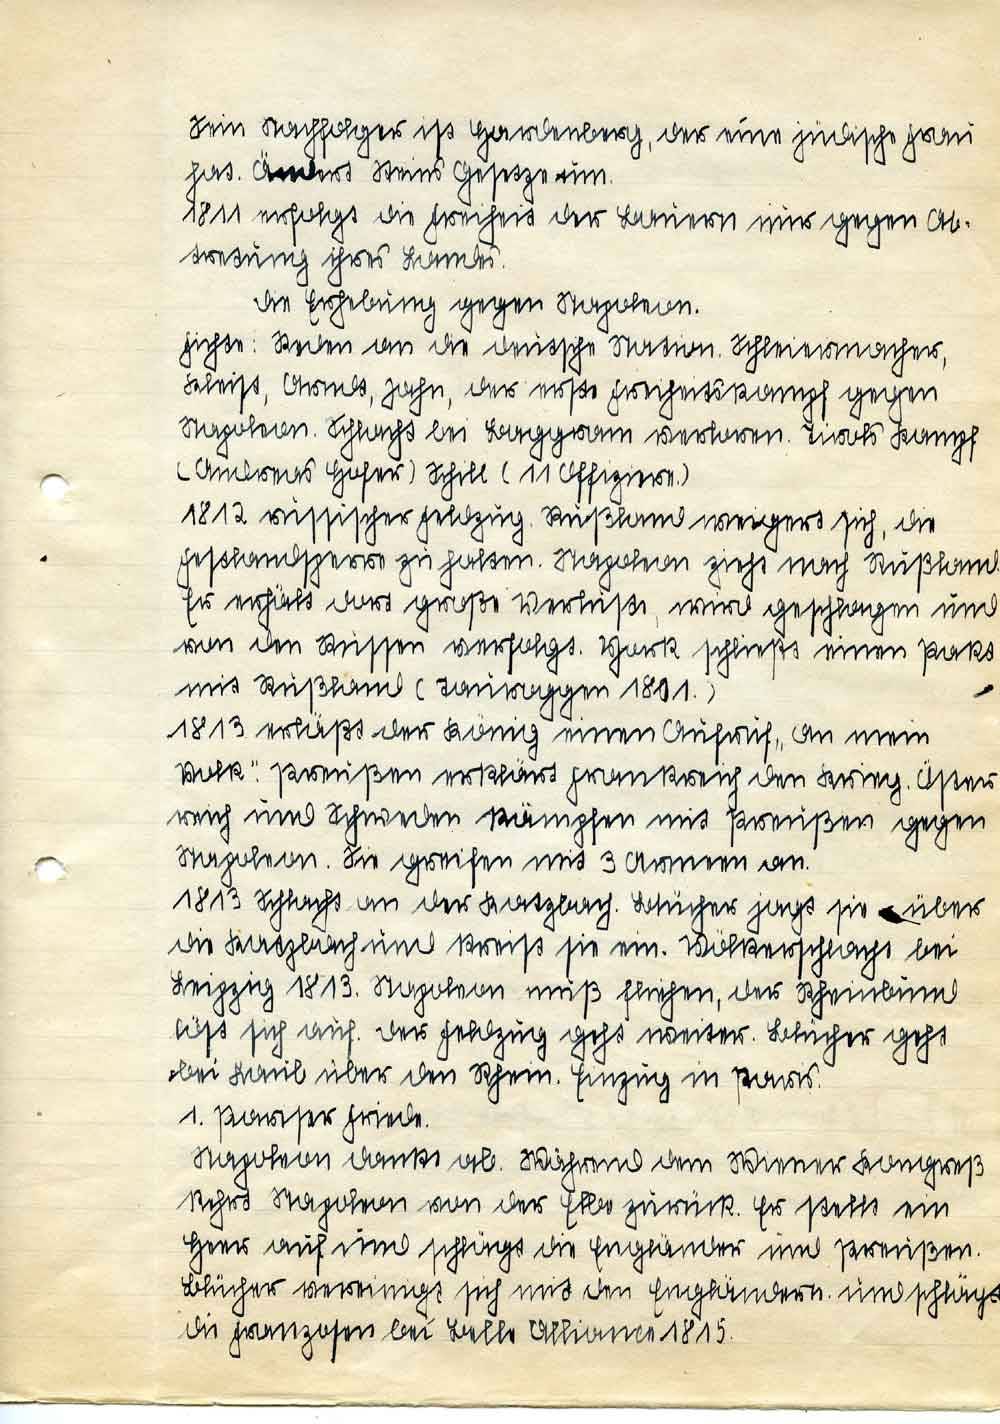 Sein Nachfolger ist Hardenberg, der eine jüdische Frau
hat. Ändert Steins Gesetze um.
1811 erfolgt die Freiheit der Bauern nur gegen Ab-
tretung ihres Landes.
Die Erhebung gegen Napoleon.
Fichte: Reden an die deutsche Nation. Schleiermacher,
Kleist, Arndt, Jahn, der erste Freiheitskampf gegen
Napoleon. Schlacht bei Waggram verloren. Tirols Kampf
(Andreas Hofer) Schill (11 Offiziere.)
1812 russischer Feldzug. Rußland weigert sich, die
Festlandsperre zu halten. Napoleon zieht nach Rußland.
Er erhält dort große Verluste, wird geschlagen und
von den Russen verfolgt. York schließt einen Pakt
mit Rußland (Tauroggen 1801.)
1813 erläßt der König einen Aufruf „An mein
Volk". Preußen erklärt Frankreich den Krieg. Öster
reich und Schweden kämpfen mit Preußen gegen
Napoleon. Sie greifen mit 3 Armeen an.
1813 Schlacht an der Katzbach. Blücher jagt sie über
die Katzbach und kreist sie ein. Völkerschlacht bei
Leipzig 1813. Napoleon muß fliehen, der Rheinbund
löst sich auf. Der Feldzug geht weiter. Blücher geht
bei Kaub über den Rhein. Einzug in Paris.
1. Pariser Friede.
Napoleon dankt ab. Während dem Wiener Kongreß
kehrt Napoleon von der Elba zurück. Er stellt ein
Heer auf und schlägt die Engländer und Preußen.
Blücher vereinigt sich mit den Engländern und schlägt
die Franzosen bei Belle Alliance 1815.